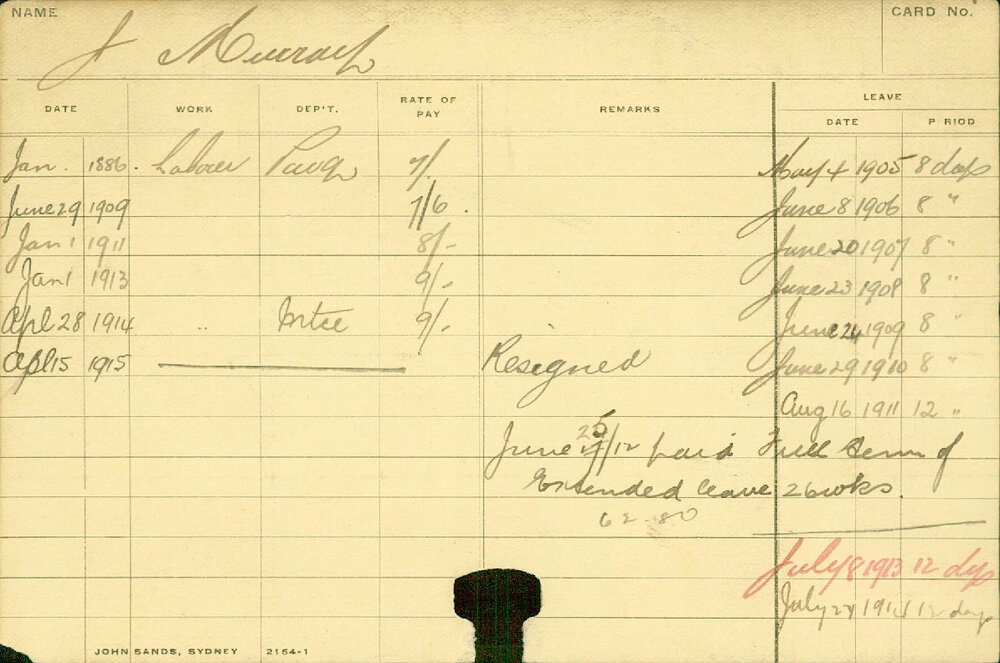 NAME
CARD No.
J Murray
DATE WORK DEP'T. RATE OF PAY REMARKS LEAVE
DATE P RIOD
Jan. 1886. Laborer Pavg 7/. May 4 1905 8 days
June 29 1909 7/6. June 8 1906 8 "
Jan 1 1911 8/- June 20 1907 8 "
Jan 1 1913 9/- June 23 1908 8 "
Apl 28 1914 " Mtce 9/- June 24 1909 8 "
Apl 15 1915 Resigned June 29 1910 8 "
Aug 16 1911 12 "
June 25/12 paid Full Term of
Extended leave 26 wks.
62.80
July 8 1913 12 dys
July 27 1914 12 days
JOHN SANDS, SYDNEY 2154-1